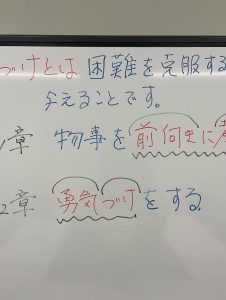 づけとは 困難を克服する
与えることです。
章 物事を前向きに
2章 勇気づけをする